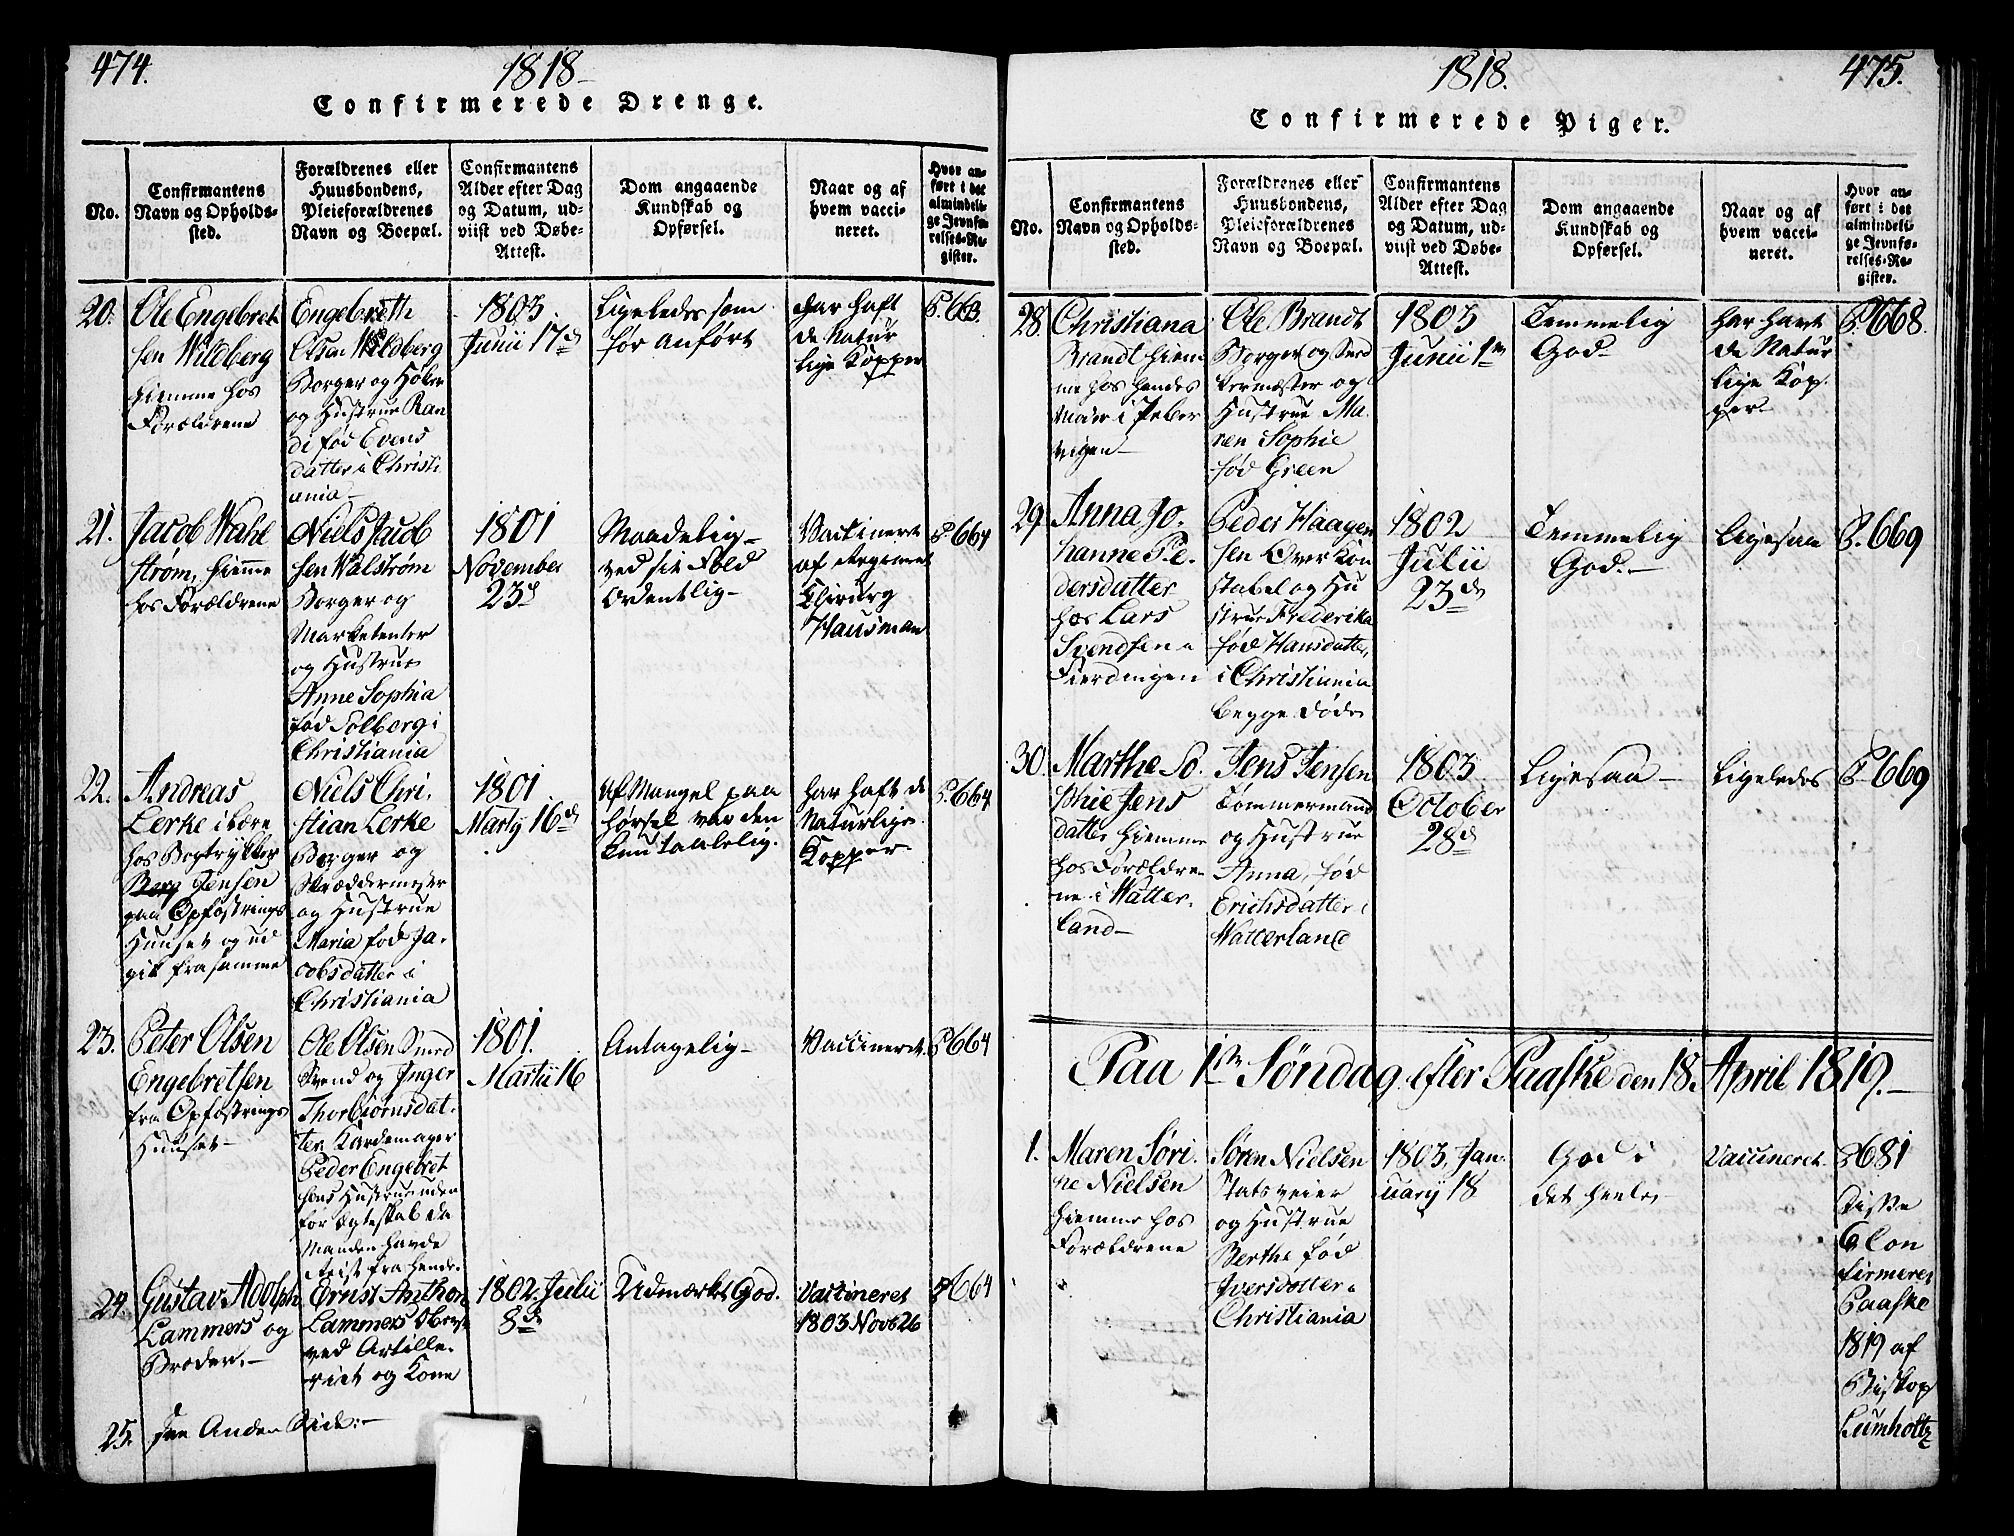 474.
1818
Confirmerede Drenge.
No.
Confirmantens
Navn og Opholds-
sted.
Forældrenes eller
Huusbondens,
Pleieforældrenes
Navn og Boepæl.
Confirmantens
Alder efter Dag
og Datum, ud-
viist ved Døbe-
Attest.
Dom angaaende
Kundskab og
Opførsel.
Naar og af
hvem vacci-
neret.
Hvor an-
ført i det
almindeli-
ge Jevnfø-
relses-Re-
gister.
20.
Ole Engebret
sen Wildberg
hiemme hos
Forældrene
Engebreth
Olsen Wildberg
Borger og Høker
og Hustrue Ran
di fød Evens
datter i Christi
ania-
1803.
Junii 17d
Ligeledes som
før anført
Har haft
de Natur
lige Kopper
P. 663.
21.
Jacob Wahl
strøm, hiemme
hos Forældrene
Niels Jacob
sen Walstrøm
Borger og
Marketenter
og Hustrue
Anne Sophia
fød Solberg i
Christiania
1801
November
23d
Maadelig-
ved sit Fold
Ordentlig-
Vaccineret
af Regiment
Chirurg
Hausman
P. 664
22.
Andreas
Lerke i Lære
hos Bogtrykker
Berg Jensen
paa Opfostrings
Huuset og ud
gik fra samme
Niels Chri,
stian Lerke
Borger og
Skræddermester
og Hustrue
Maria fød Ja-
cobsdatter i
Christiania
1801.
Martÿ 16d
Af Mangel paa
hørsel var den
kun taalelig.
Har haft de
Naturlige
Kopper-
P. 664
23.
Peter Olsen
Engebretsen
fra Opfostrings
Huuset-
Ole Olsen Smed
Svend og Inger
Thorbiørnsdat-
ter Kardemager
Peder Engebret
sens Hustrue uden
for Ægteskab da
Manden havde
reist fra hende.
1801.
Martii 16
Antagelig-
Vaccineret.
P. 664
24.
Gustav Adolph
Lammers og
Broder.-
Ernst Anthon
Lammers Oberst
ved Artille-
riet og Kone
1802. Julii
8d
Udmærket God.
Vaccineret
1803 Novb 26
P 664
25.
see Anden Side:-
1818.
475.
Confirmerede Piger.
No.
Confirmantens
Navn og Opholds-
sted.
Forældrenes eller
Huusbondens,
Pleieforældrenes
Navn og Boepæl.
Confirmantens
Alder efter Dag
og Datum, ud-
viist ved Døbe-
Attest.
Dom angaaende
Kundskab og
Opførsel.
Naar og af
hvem vacci-
neret.
Hvor an-
ført i det
almindeli-
ge Jevnfø-
relses-Re-
gister.
28.
Christiana
Brandt hiem
me hos hendes
Moder i Peber
vigen-
Ole Brandt
Borger og Sned
kermester og
Hustrue Ma.
ren Sophie
fød Green
1803
Junii 1m
Temmelig
God-
Har havt
de Natur
lige Kop.
per-
P. 668.
29.
Anna Jo.
hanne Pe-
dersdatter
hos Lars
Svendsen i
Fierdingen
Peder Haagen
sen Over Kon
stabel og Hu
strue Frederika
fød Hansdatter,
i Christiania
begge døde
1802
Julii
23d
Temmelig
God.-
Ligesaa
P. 669
30.
Marthe So.
phie Jens
datter hiemme
hos Forældre
ne i Watter.
land-
Jens Jensen
Tømmermand
og Hustrue
Anna, fød
Erichsdatter i
Watterland
1803
October
28d
Ligesaa-
Ligeledes
P. 669
Paa 1te Søndag efter Paaske den 18. April 1819.-
1.
Maren Søri.
ne Nielsen
hiemme hos
Forældrene
Søren Nielsen
Stads veier
og Hustrue
Berthe fød
Iversdatter i
Christiania
1803, Jan-
uarÿ 18
God i
det heele-
Vaccineret.
P 681
Disse
Con
firmeret
Paaske
1819 af
Biskop
Lumholtz